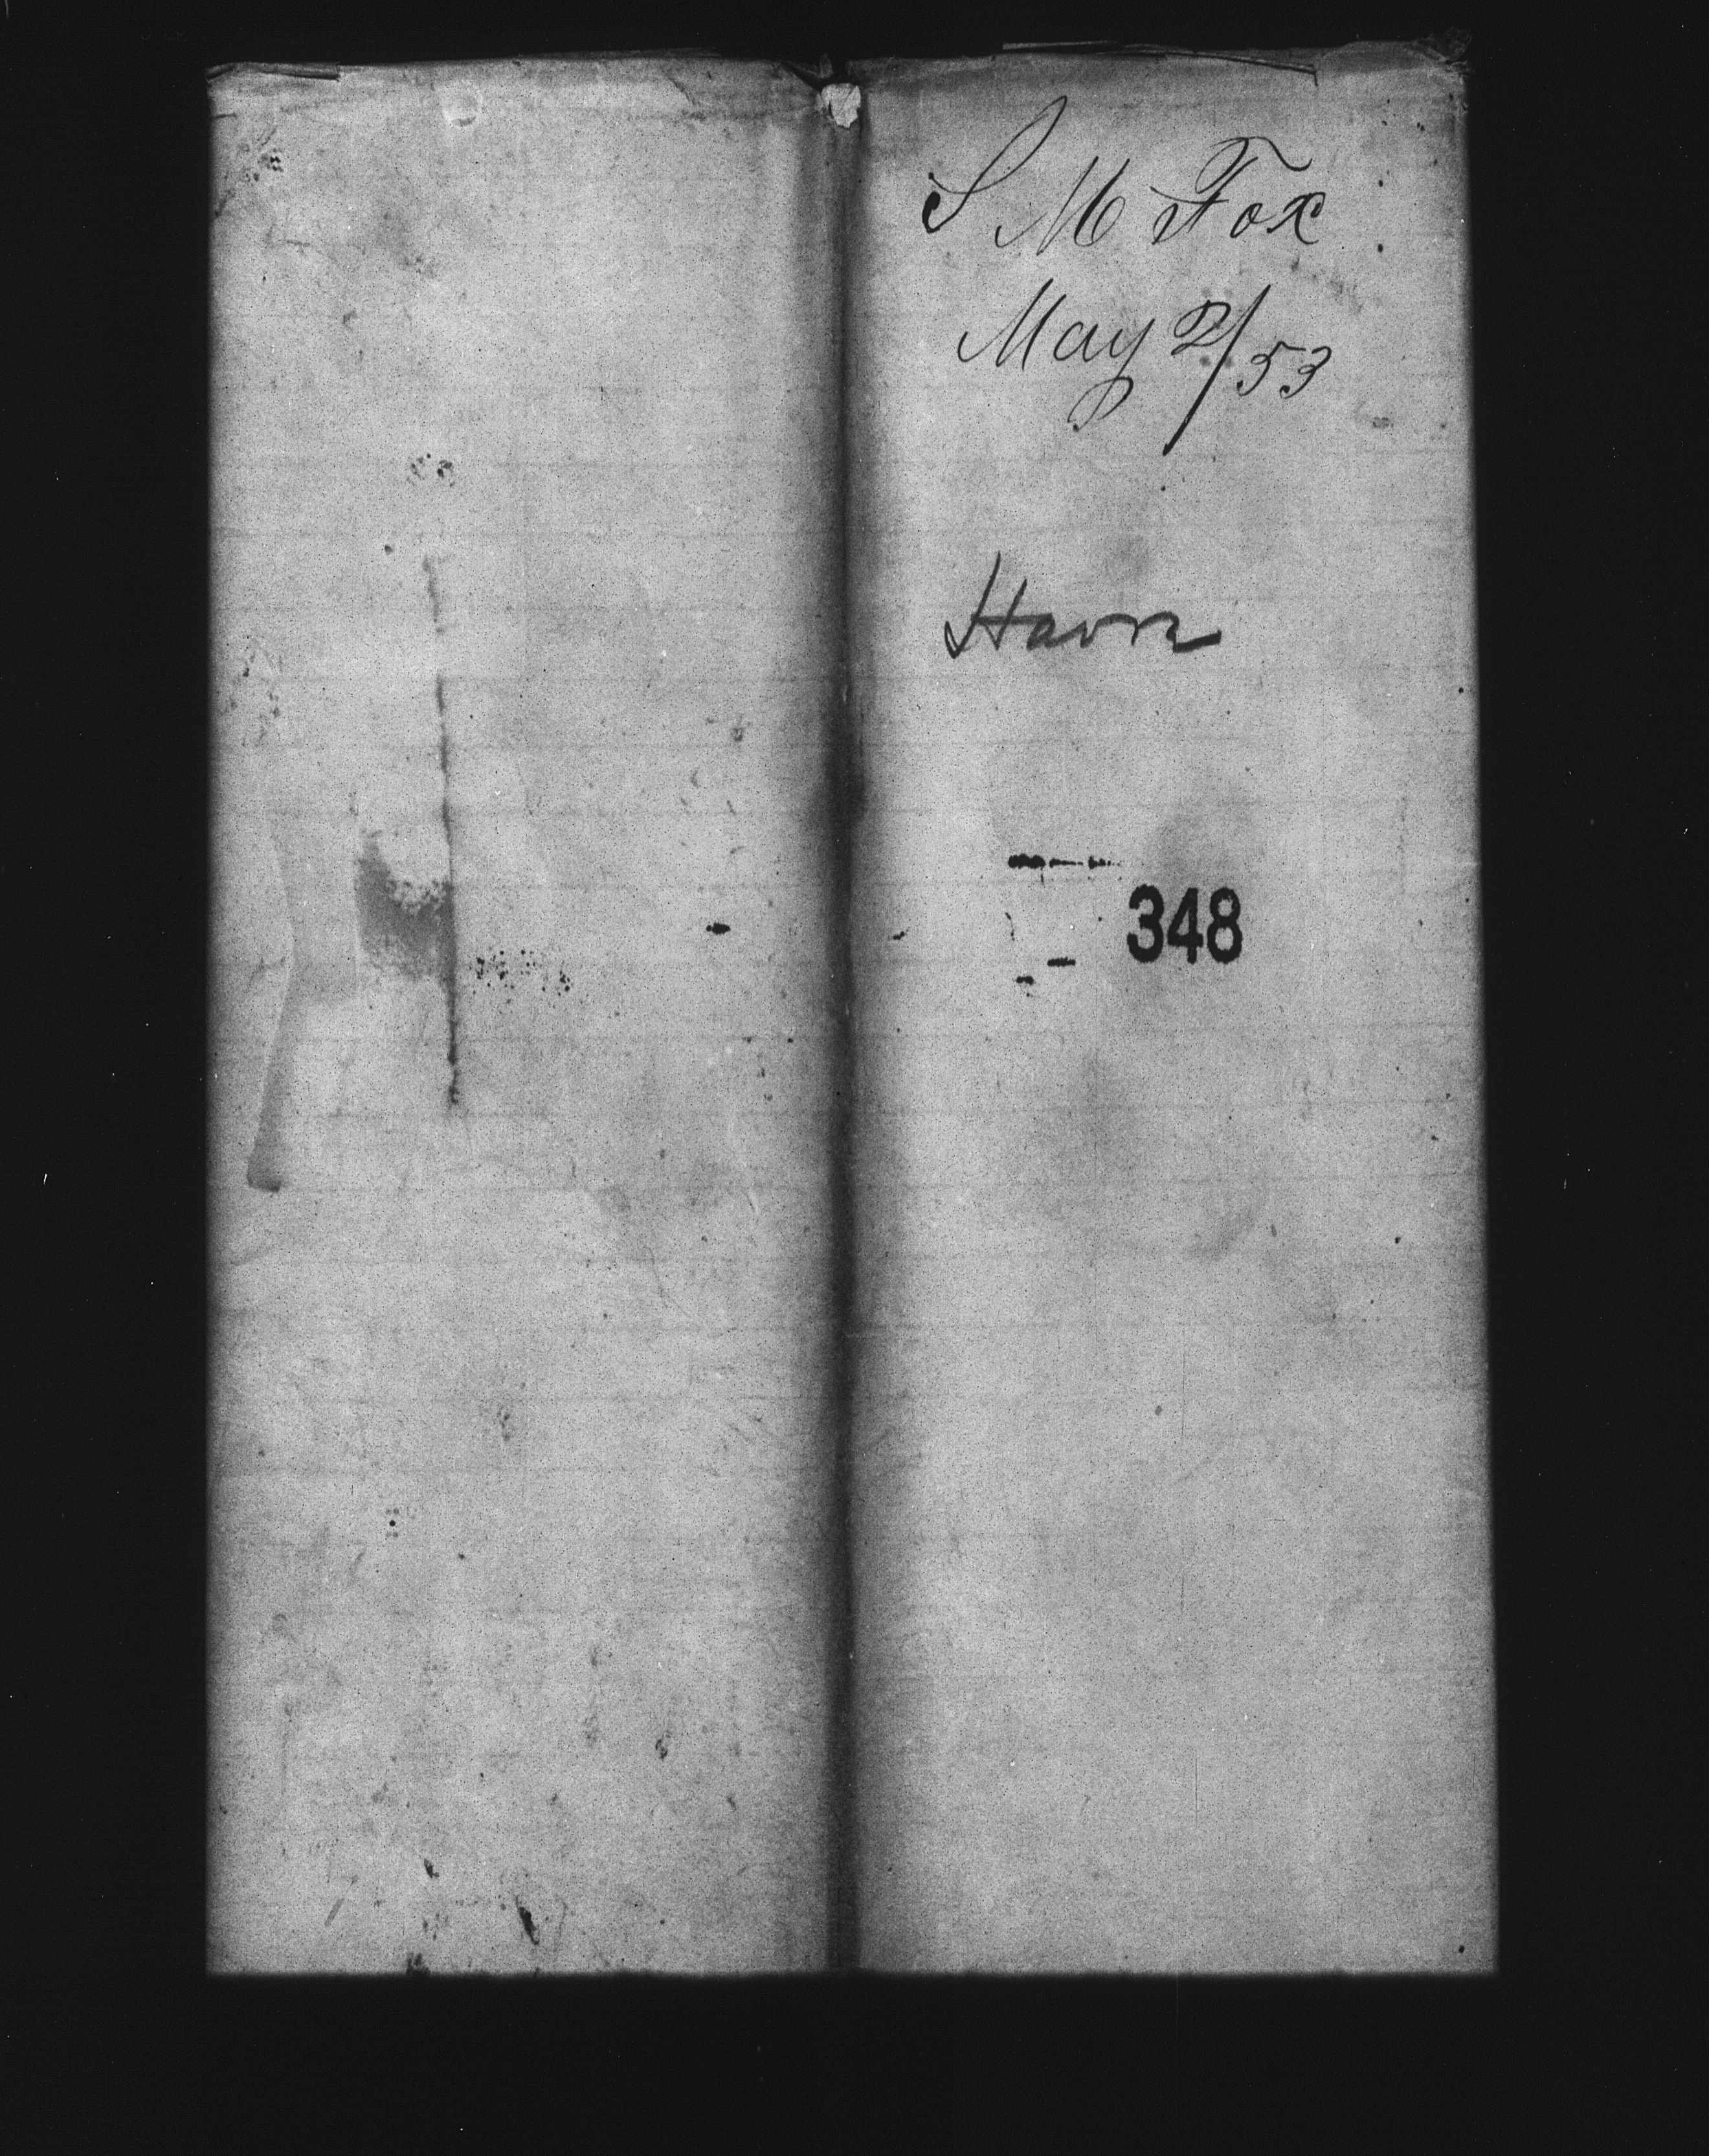 S M Fox
May 2/53
Havre
348